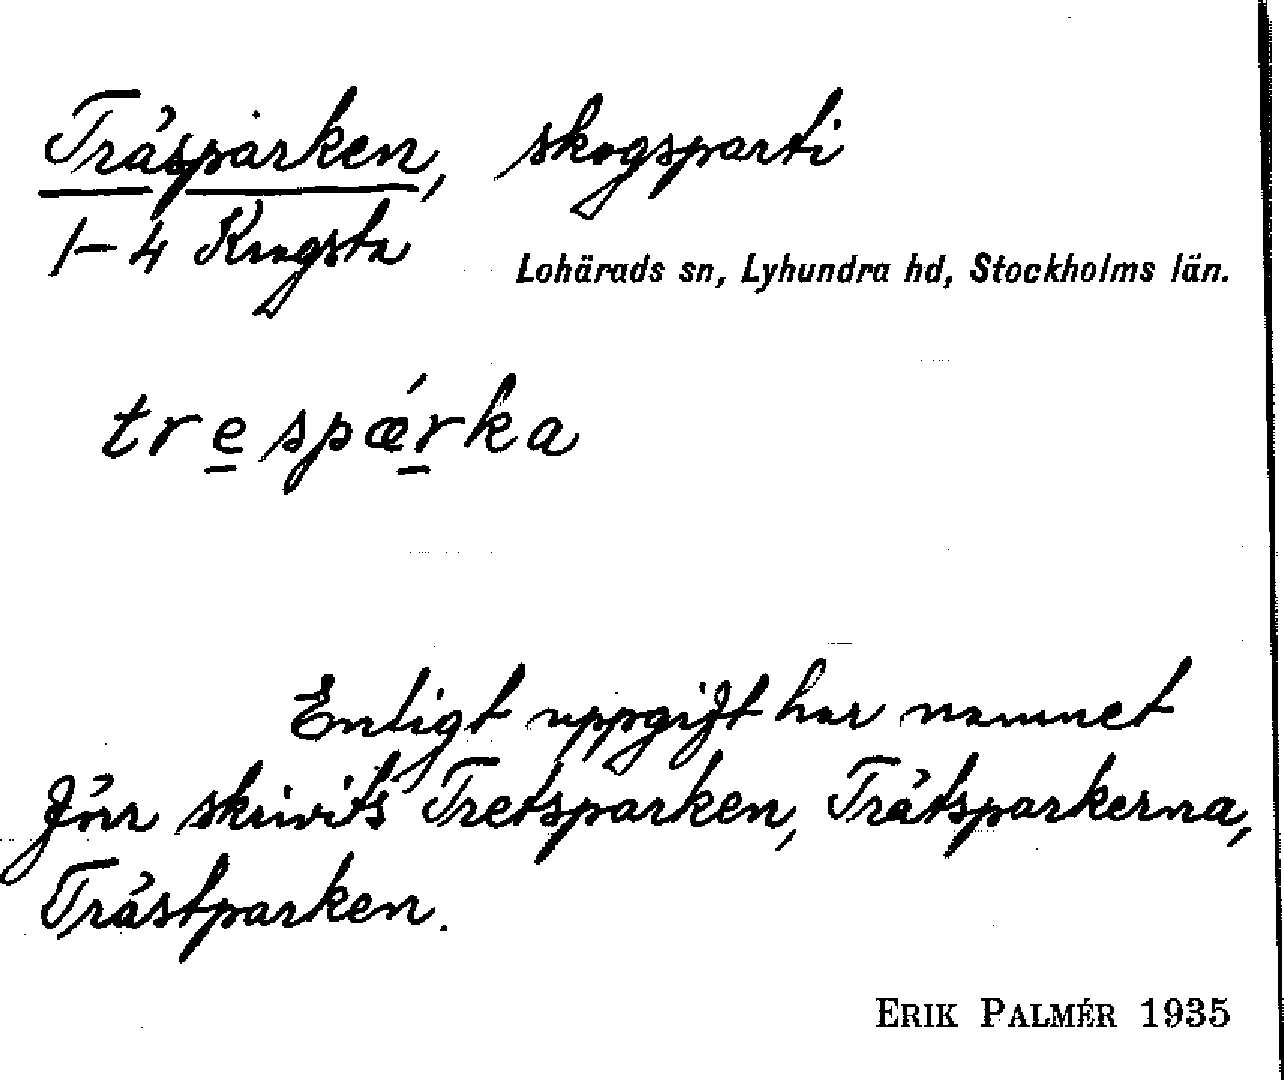 Träsparken, skogsparti
1-4 Krogsta
Lohärads sn, Lyhundra hd, Stockholms län.
tre̲spǽr̲ka
Enligt uppgift har namnet
förr skrivits Tretsparken, Trätsparkerna,
Trästparken.
ERIK PALMÉR 1935